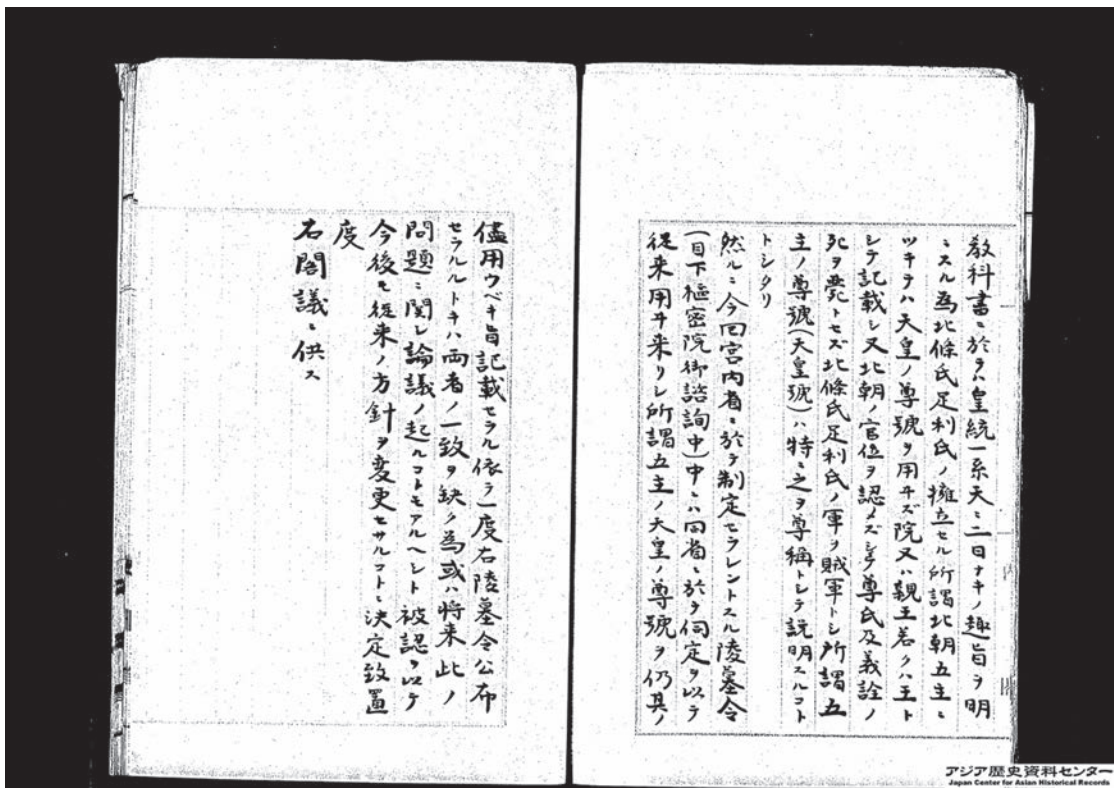 教科書ニ於テハ皇統一系天ニ二日ナキノ趣旨ヲ明
ニスル為北條氏足利氏ノ擁立セル所謂北朝五主ニ
ツキテハ天皇ノ尊號ヲ用ヰズ院又ハ親王若クハ王ト
シテ記載シ又北朝ノ官位ヲ認メズシテ尊氏及義詮ノ
死ヲ薨トセズ北條氏足利氏ノ軍ヲ賊軍トシ所謂五
主ノ尊號(天皇號)ハ特ニ之ヲ尊稱トシテ説明スルコト
トシタリ
然ルニ今回宮内省ニ於テ制定セラレントスル陵墓令
(目下樞密院御諮詢中)中ニハ同省ニ於テ伺定ヲ以テ
從来用ヰ来リシ所謂五主ノ天皇ノ尊號ヲ仍其ノ
儘用ウベキ旨記載セラル依テ一度右陵墓令公布
セラルルトキハ両者ノ一致ヲ缺ク為或ハ将来此ノ
問題ニ関シ論議ノ起ルコトモアルヘシト被認ヲ以テ
今後モ従来ノ方針ヲ変更セサルコトニ決定致置
度
右閣議ニ供ス
アジア歴史資料センター
Japan Center for Asian Historical Records